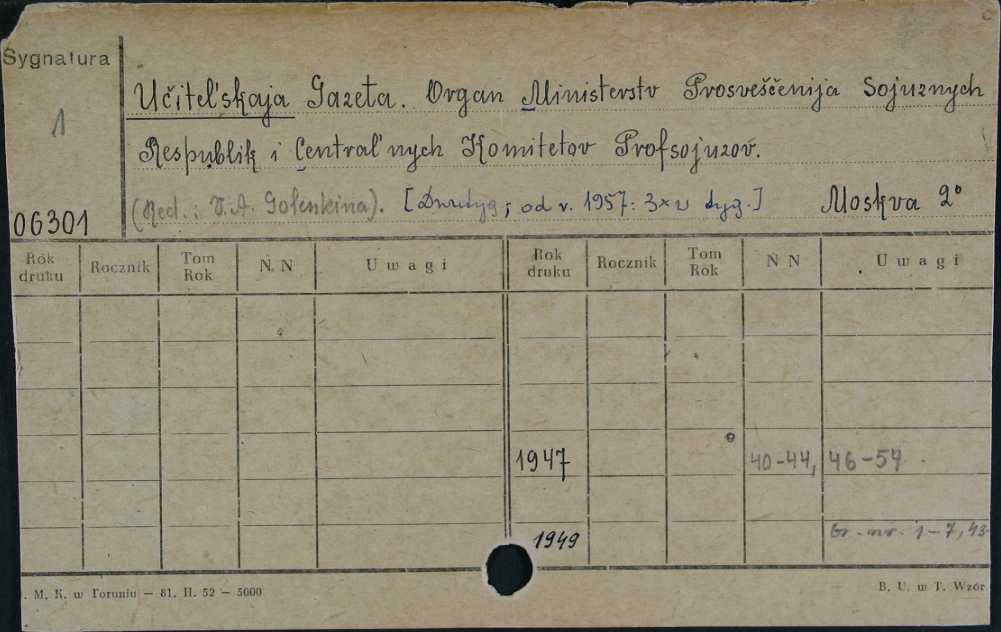 Sygnatura
1
Učitel'skaja Gazeta. Organ Ministerstv Prosveščenija Sojuznych
Respublik i Central'nych Komitetov Profsojuzov.
(Red.: V. A. Golenkina). [Dwutyg; od r. 1957: 3x w tyg.] Moskva 2°
06301
Rok druku Rocznik Tom Rok N. N Uwagi Rok druku Rocznik Tom Rok N N Uwagi
1947 40-44, 46-54
1949 br. nr. 1-7, 43
. M. K. w Toruniu — 81. II. 52 — 5000 B. U. w T. Wzór